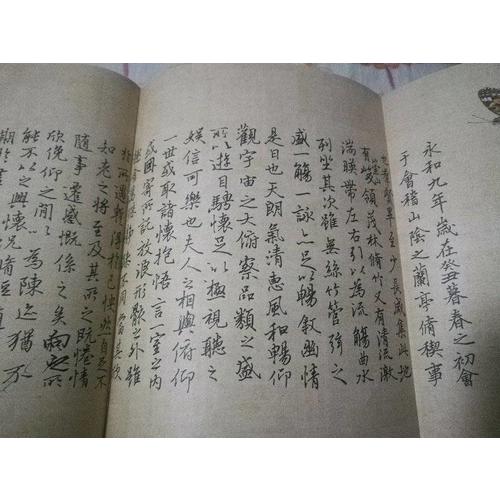 永和九年歲在癸丑暮春之初會
于會稽山陰之蘭亭脩稧事
也羣賢畢至少長咸集此地
有崇山峻領茂林脩竹又有清流激
湍暎帶左右引以為流觴曲水
列坐其次雖無絲竹管弦之
盛一觴一詠亦足以暢敘幽情
是日也天朗氣清惠風和暢仰
觀宇宙之大俯察品類之盛
所以遊目騁懷足以極視聽之
娛信可樂也夫人之相與俯仰
一世或取諸懷抱悟言一室之內
或因寄所託放浪形骸之外雖
不同當其欣
於所遇暫得於己快然自足不
知老之將至及其所之既惓情
隨事遷感慨係之矣向之所
欣俛仰之間以為陳迹猶不
能不以之興懷況脩短
期於盡